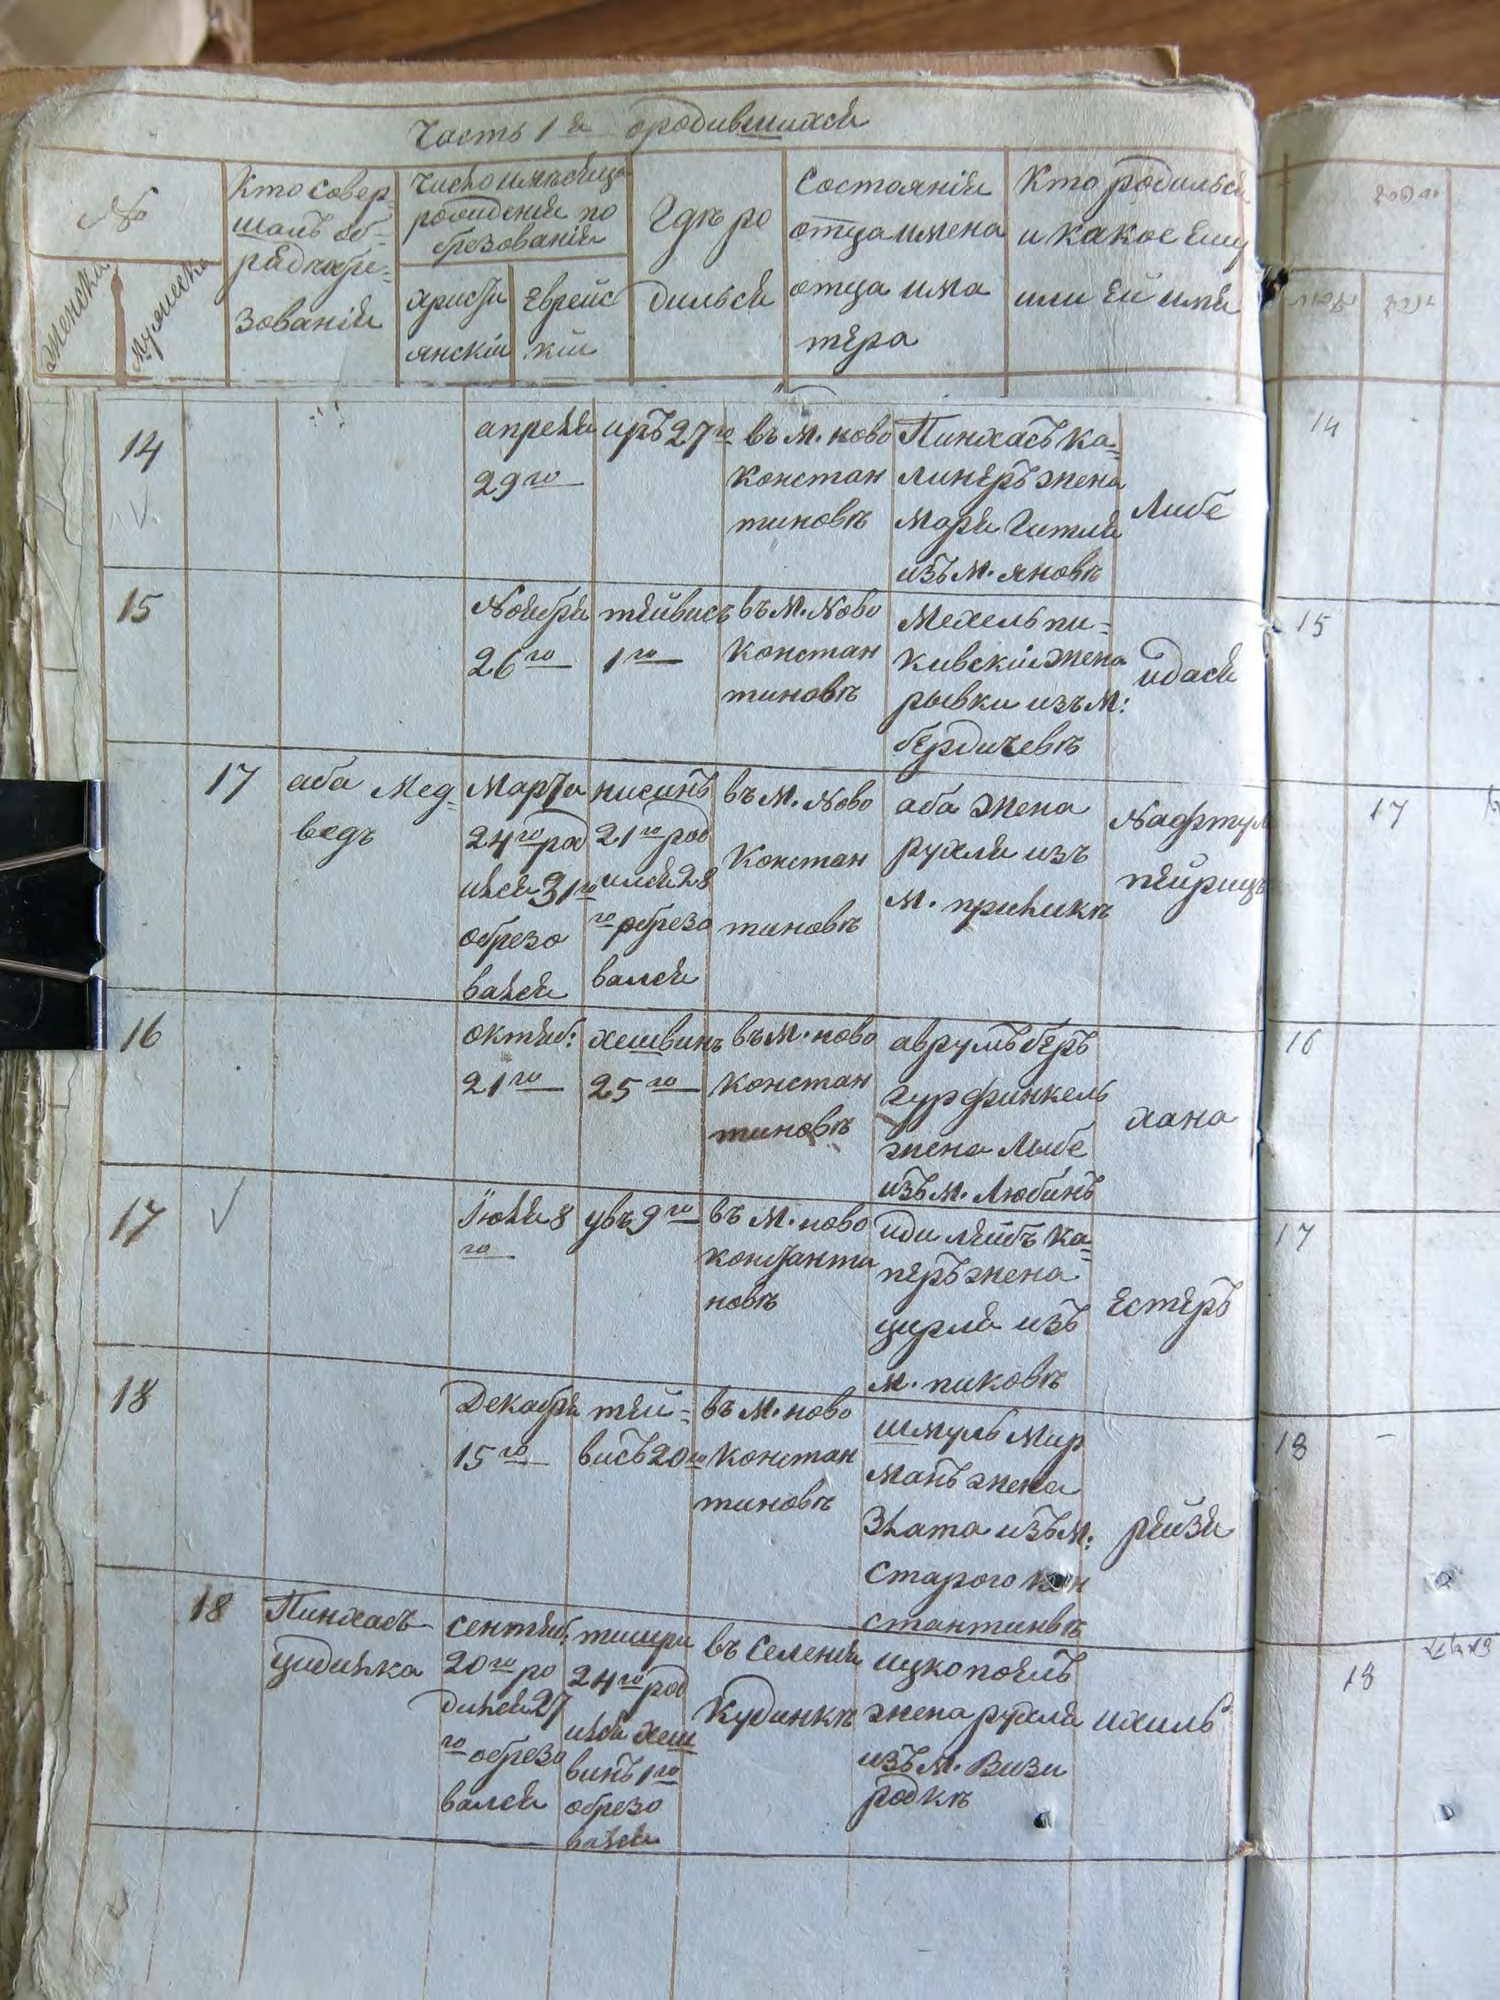 Часть 1я ородившихся
№
Женска
Мужеска
Кто совер-
шалъ об-
рядъ обре-
зованія
Число и месеца
рождения по
брезованія
христи
янскій
Еврейс
кій
Гдѣ ро
дился
Состоянія
отца имена
отца и ма
тера
Кто родился
и какое ему
или ей имя
14
апреля
29го
иръ 27го
въ м. ново
констан
тиновѣ
Пинхасъ ка-
линеръ жена
Маря Гитля
изъ м. яновѣ
Либе
15
Ноября
26го
тейвисъ
1го
въ м. Ново
констан
тиновѣ
Мехель пи-
кивскій жена
рывки изъ м:
бердичевѣ
идася
17
аба Мед-
ведъ
Марта
24го род
ился 31го
обрезо
вался
нисинъ
21го род
ился 28
го обрезо
вался
въ м. Ново
Констан
тиновѣ
аба жена
рухля изъ
м. приликѣ
Нафтул
пейрицъ
16
октяб:
21го
хешвинъ
25го
въ м. ново
констан
тиновѣ
аврумъ беръ
гурфинкель
жена Либе
изъ м. Любинъ
хана
17
Июля 8
го
увъ 9го
въ м. ново
константи
новѣ
иди лейбъ ка-
перъ жена
цирля изъ
м. пиковѣ
естеръ
18
Декабря
15го
тей-
висъ 20го
въ м. ново
констан
тиновѣ
шмуль Мир
манъ жена
Злата изъ м:
Старого кон
стантинвѣ
рейзя
18
Пинхасъ
цидилка
сентяб:
20го ро
дился 27
го обрезо
вался
тишри
24го род
ился хеш
винъ 1го
обрезо
вался
въ селения
Кудинкѣ
ицко поель
жена рухля
изъ м. Визи
родкѣ
ихиль
14
15
17
16
17
18
18